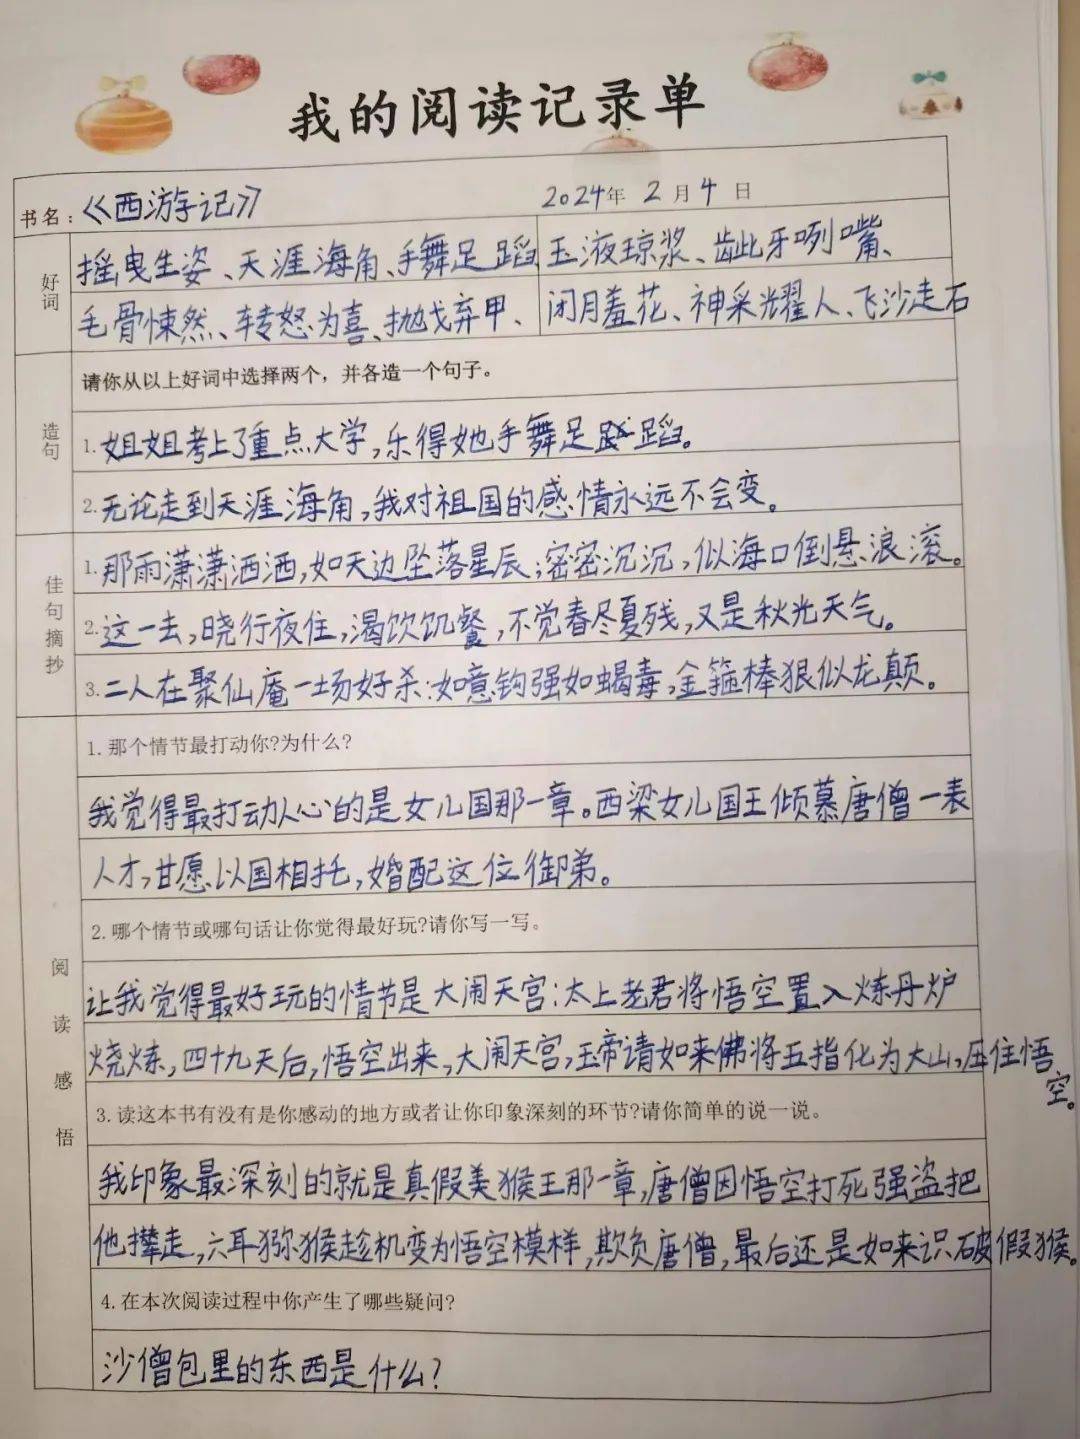 我的阅读记录单
书名：《西游记》 2024年 2月4日
好词
摇曳生姿、天涯海角、手舞足蹈 玉液琼浆、龇牙咧嘴、
毛骨悚然、转怒为喜、抛戈弃甲、 闭月羞花、神采光耀人、飞沙走石
造句
请你从以上好词中选择两个，并各造一个句子。
1.姐姐考上了重点大学,乐得她手舞足蹈。
2.无论走到天涯海角,我对祖国的感情永远不会变。
佳句摘抄
1.那雨潇潇洒洒,如天边坠落星辰;密密沉沉,似海口倒悬浪滚。
2.这一去,晓行夜住,渴饮饥餐,不觉春尽夏残,又是秋光天气。
3.二人在聚仙庵一场好杀:如意钩强如蝎毒,金箍棒狠似龙颠。
阅读感悟
1.那个情节最打动你?为什么?
我觉得最打动人心的是女儿国那一章。西梁女儿国王倾慕唐僧一表
人才,甘愿以国相托,婚配这位御弟。
2.哪个情节或哪句话让你觉得最好玩?请你写一写。
让我觉得最好玩的情节是大闹天宫:太上老君将悟空置入炼丹炉
烧炼,四十九天后,悟空出来,大闹天宫,玉帝请如来佛将五指化为大山,压住悟
空。
3.读这本书有没有是你感动的地方或者让你印象深刻的环节?请你简单的说一说。
我印象最深刻的就是真假美猴王那一章,唐僧因悟空打死强盗把
他撵走,六耳猕猴趁机变为悟空模样,欺负唐僧,最后还是如来识破假猴。
4.在本次阅读过程中你产生了哪些疑问?
沙僧包里的东西是什么?